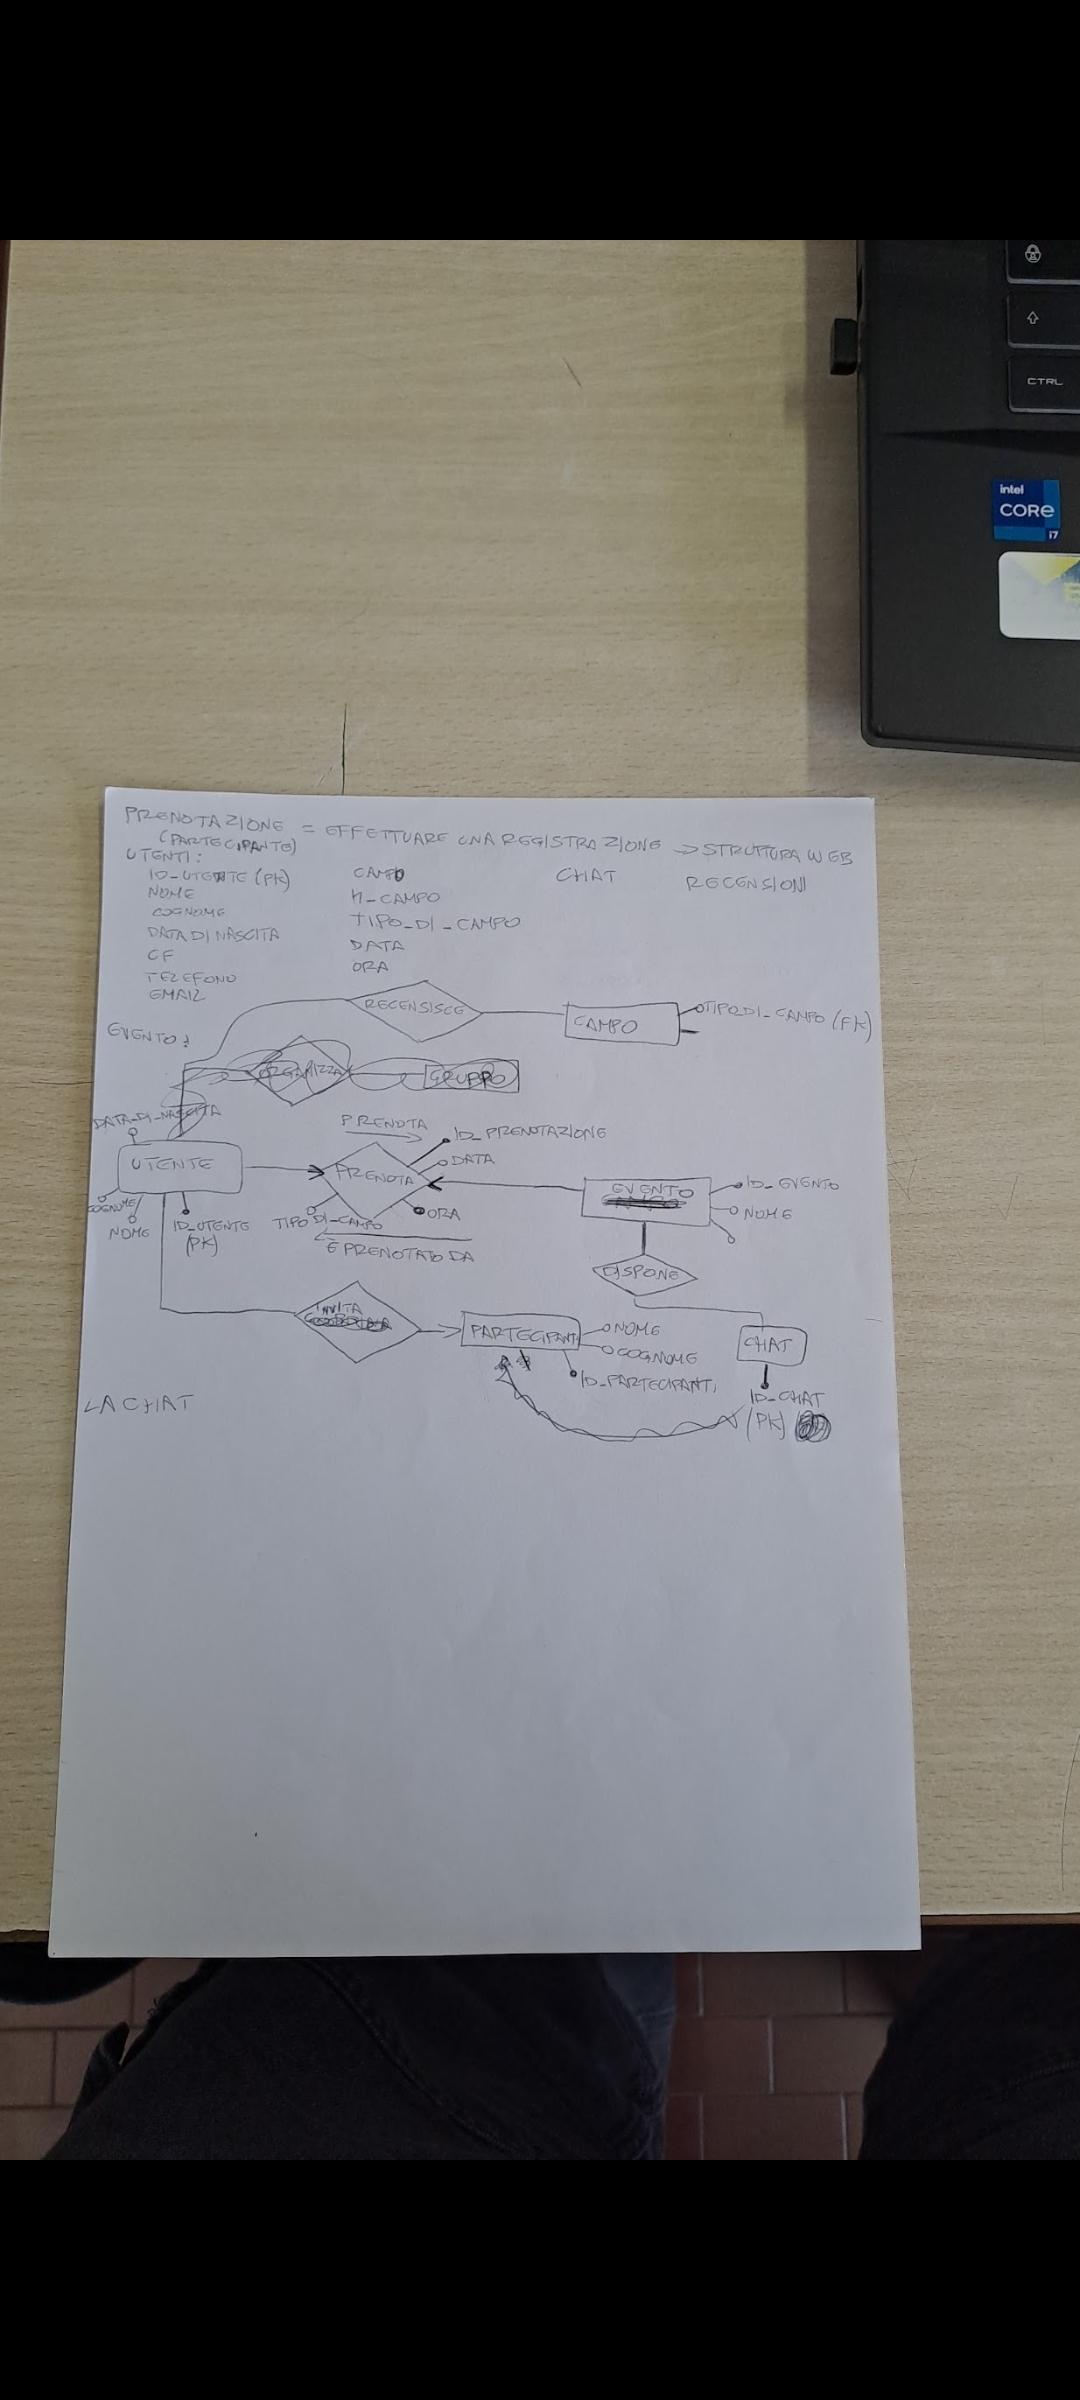 CTRL
intel
CORE
i7
PRENOTAZIONE = EFFETTUARE UNA REGISTRAZIONE -> STRUTTURA WEB
(PARTECIPANTE)
UTENTI:
ID_UTENTE (PK)
NOME
COGNOME
DATA DI NASCITA
CF
TELEFONO
EMAIL
CAMPO
N_CAMPO
TIPO_DI_CAMPO
DATA
ORA
CHAT
RECENSIONI
EVENTO:
RECENSISCE
CAMPO
TIPO_DI_CAMPO (FK)
ORGANIZZA
GRUPPO
DATA_DI_NASCITA
UTENTE
COGNOME
NOME
ID_UTENTE
(PK)
PRENOTA
PRENOTA
ID_PRENOTAZIONE
DATA
ORA
TIPO DI_CAMPO
È PRENOTATO DA
EVENTO
ID_EVENTO
NOME
DISPONE
INVITA
PARTECIPANTI
NOME
COGNOME
ID_PARTECIPANTI
CHAT
ID_CHAT
(PK)
LA CHAT